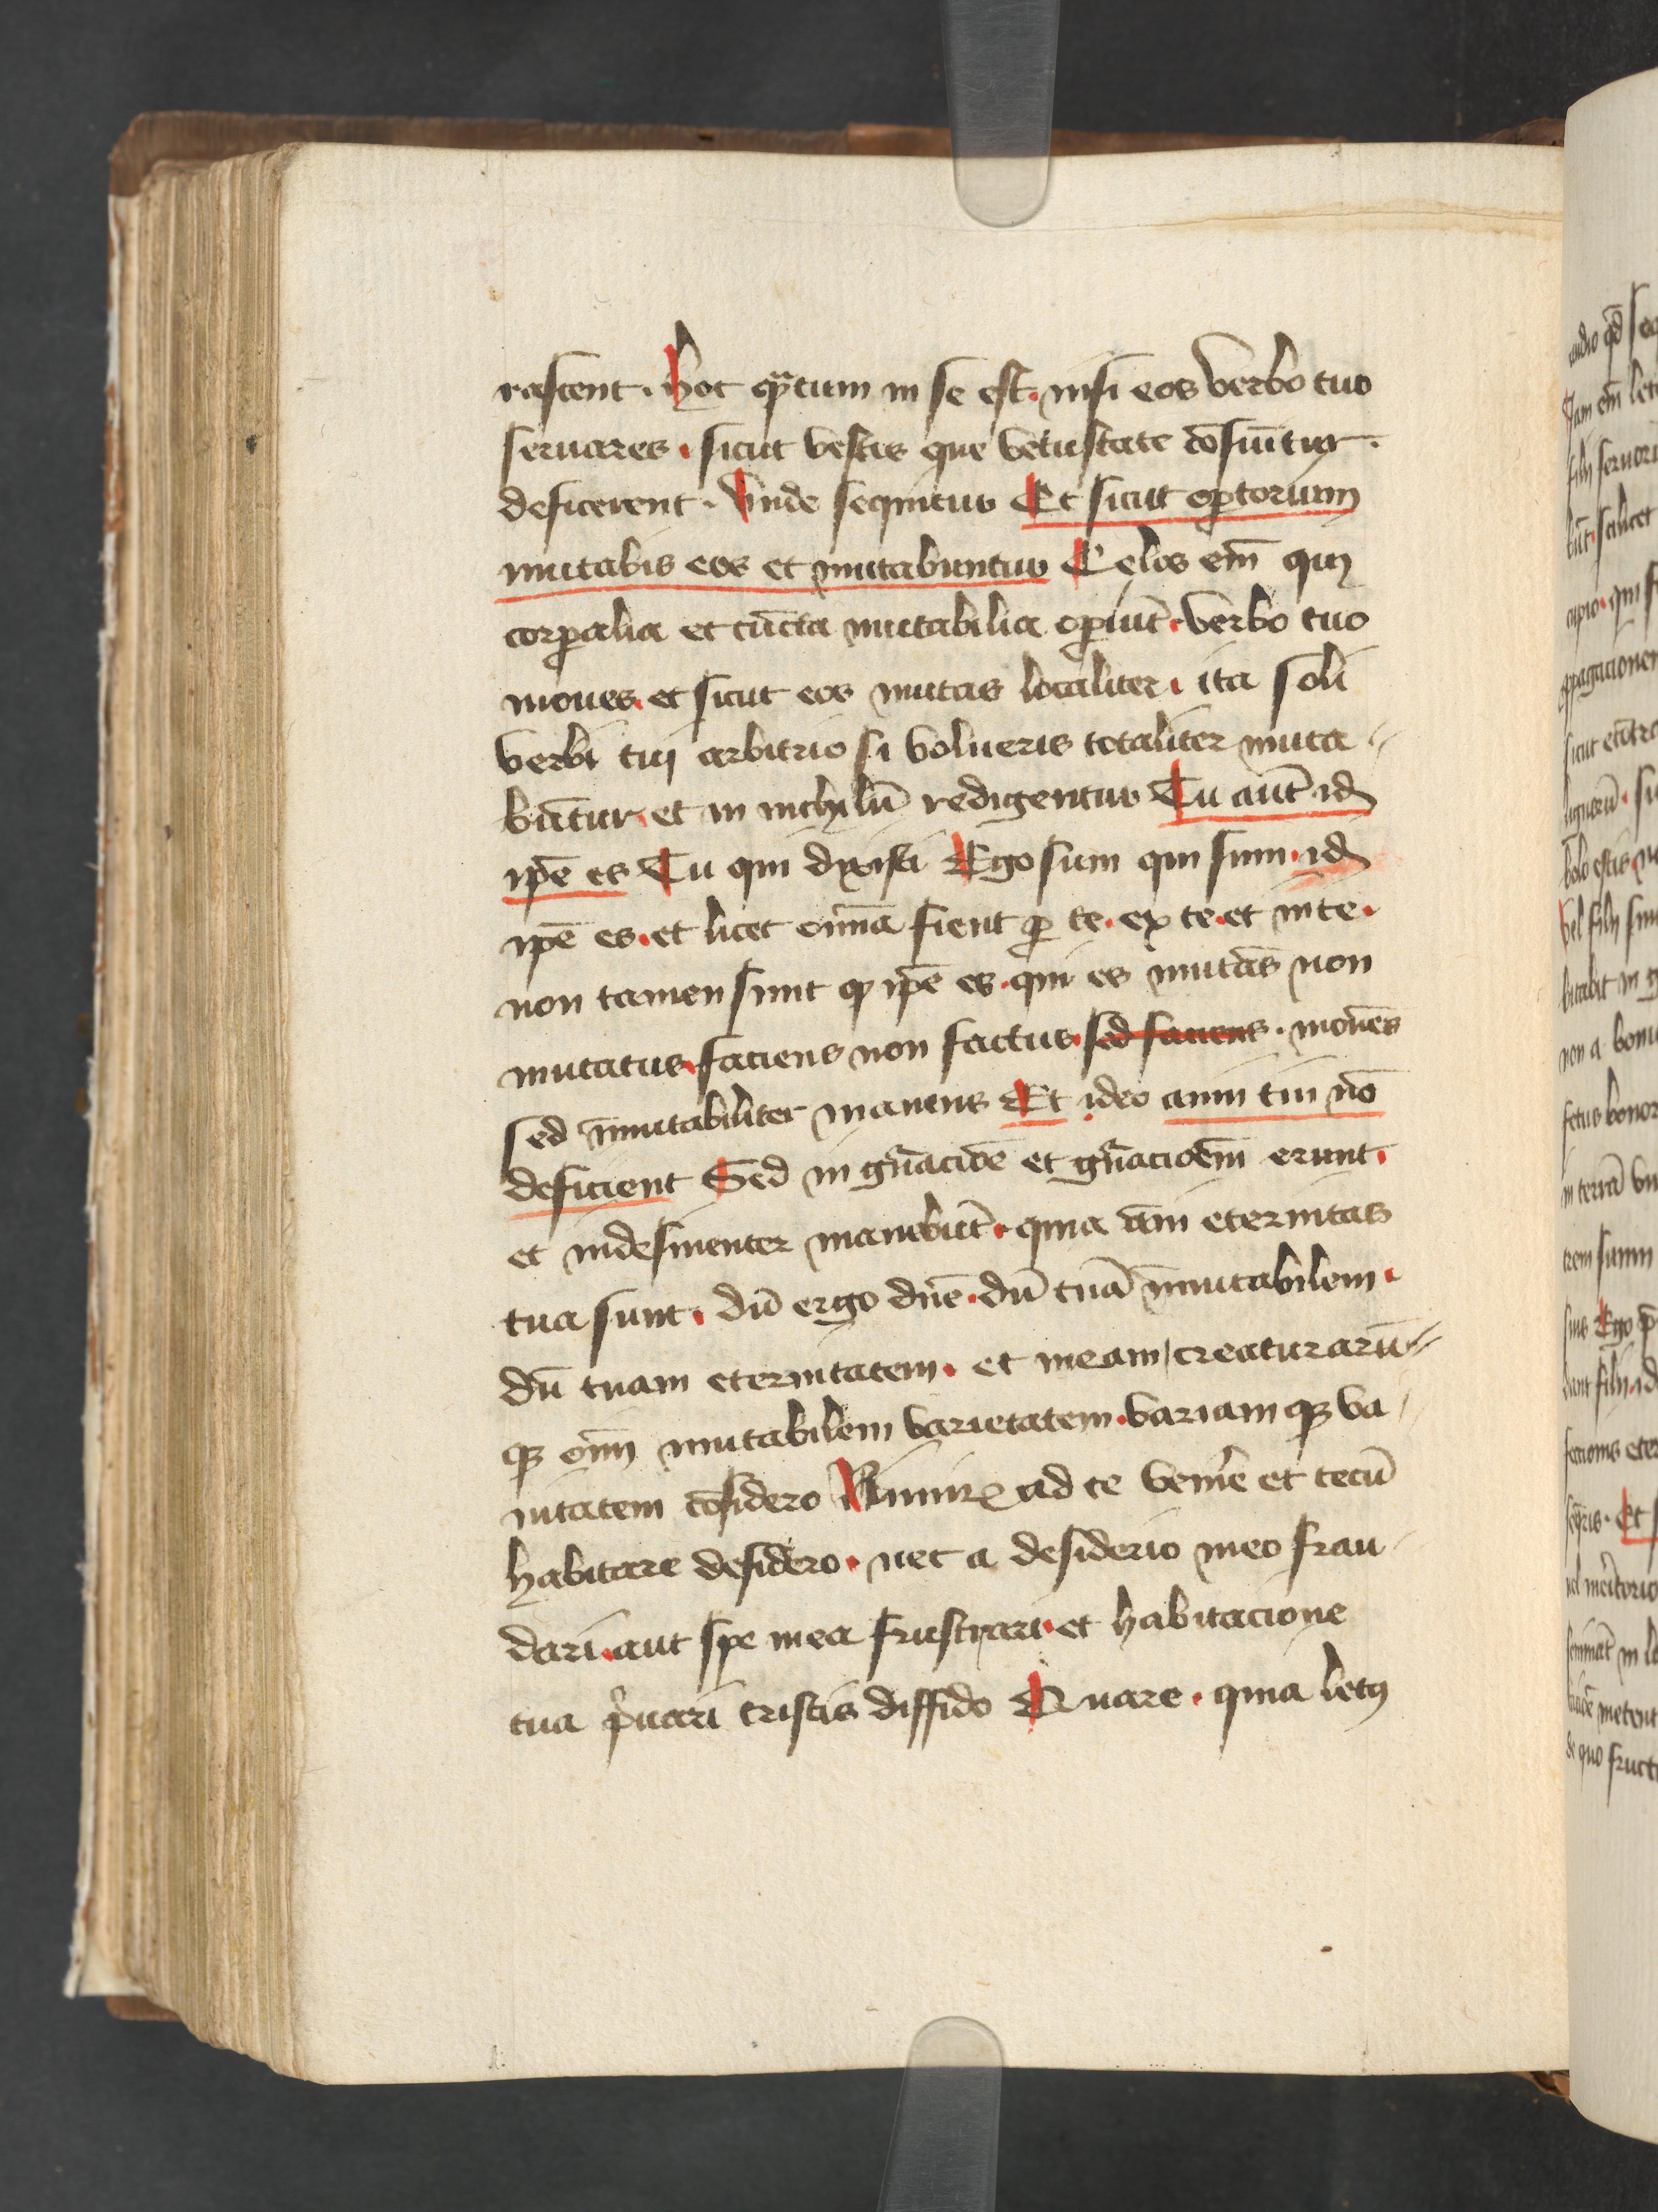 rascent. Hoc qᷓtum in se est. nisi eos verbo tuo
seruares. sicut vestis que vetustate cōsumitur.
deficerent. Vnde sequitur Et sicut optorium
mutabis eos et mutabuntur Celos em̄ qui
corꝑalia et cūcta mutabilia oꝑiūt. verbo tuo
moues. et sicut eos mutas localiter. ita soli
verbi tui arbitrio si volueris totaliter muta
būtur. et in nichilū redigentur Tu aūt idē
ip̄e es Tu qui dixisti Ego sum qui sum. idē
ip̄e es. et licet om̄ia fient ꝑ te. ex te. et in te.
non tamen sunt ꝙ ip̄e es. qui es mutās non
mutatus. faciens non factus. sed faciens. mouēs
sed īmutabiliter manens Et ideo anni tui nō
deficient Sed in gn̄acioē et gn̄acioēm erunt.
et indesinenter manebūt. quia
eternitas
tua sunt. dū ergo dn̄e. dū tuā īmutabilem.
dū tuam eternitatem. et meam creaturarū
qꝫ om̄i mutabilem varietatem. variam qꝫ va
nitatem cōsidero Nimirꝝ ad te venire et tecū
habitare desidero. nec a desiderio meo frau
dari. aut spe mea frustrari. et habitacione
tua p̄uari tristis diffido Quare. quia letꝰ